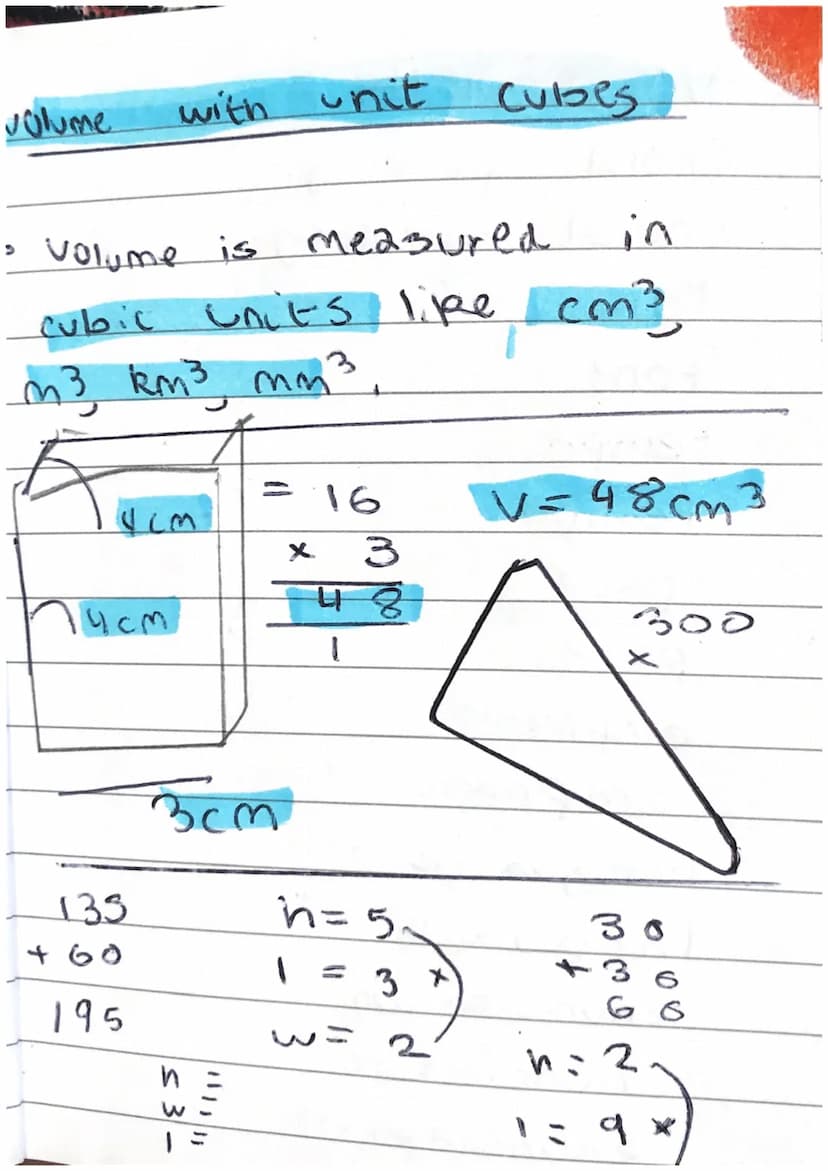 volume with unit cubes
• volume is measured in
cubic units like cm³,
m³, km³, mm³.
4cm
= 16
× 3
48
1
V = 48cm³
4cm
300
×
3cm
135
+ 60
195
h = 5
l = 3 ×
w = 2
30
+ 36
66
h =
w =
l =
h = 2
l = 9 ×